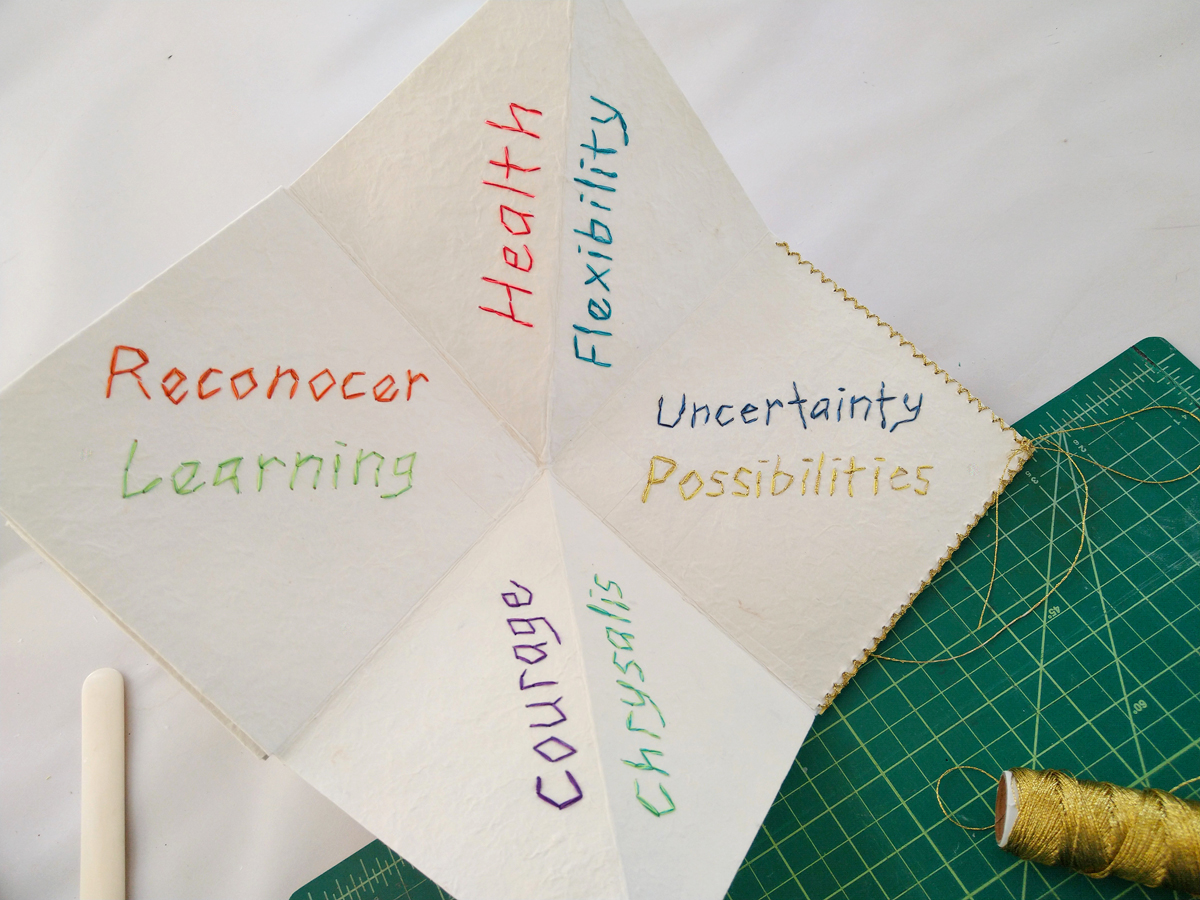 Health
Flexibility
Reconocer
Learning
Uncertainty
Possibilities
Courage
Chrysalis
45°
60°